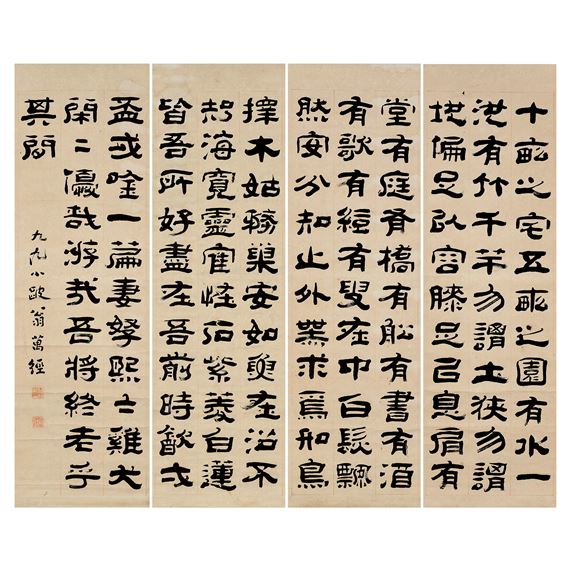 十畝之宅五畝之園有水一
池有竹千竿勿謂土狹勿謂
地偏足以容膝足以息肩有
堂有庭有橋有船有書有酒
有歌有絃有叟在中白鬚飄
然安分知止外無求焉如鳥
擇木姑務巢安如魚在沼不
知海寬靈隺怪石紫菱白蓮
皆吾所好盡在吾前時飲弌
盃或吟一篇妻孥熙〻雞犬
閑〻優哉游哉吾將終老乎
其間
九沙小跛翁萬經